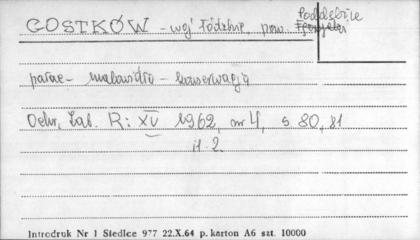 GOSTKÓW - woj. łódzkie, pow. Poddębice
pałac - malowidło - konserwacja
Ochr. Zab. R: XV 1962, nr 4, s 80, 81
il. 2.
Introdruk Nr 1 Siedlce 977 22.X.64 p. karton A6 szt. 10000